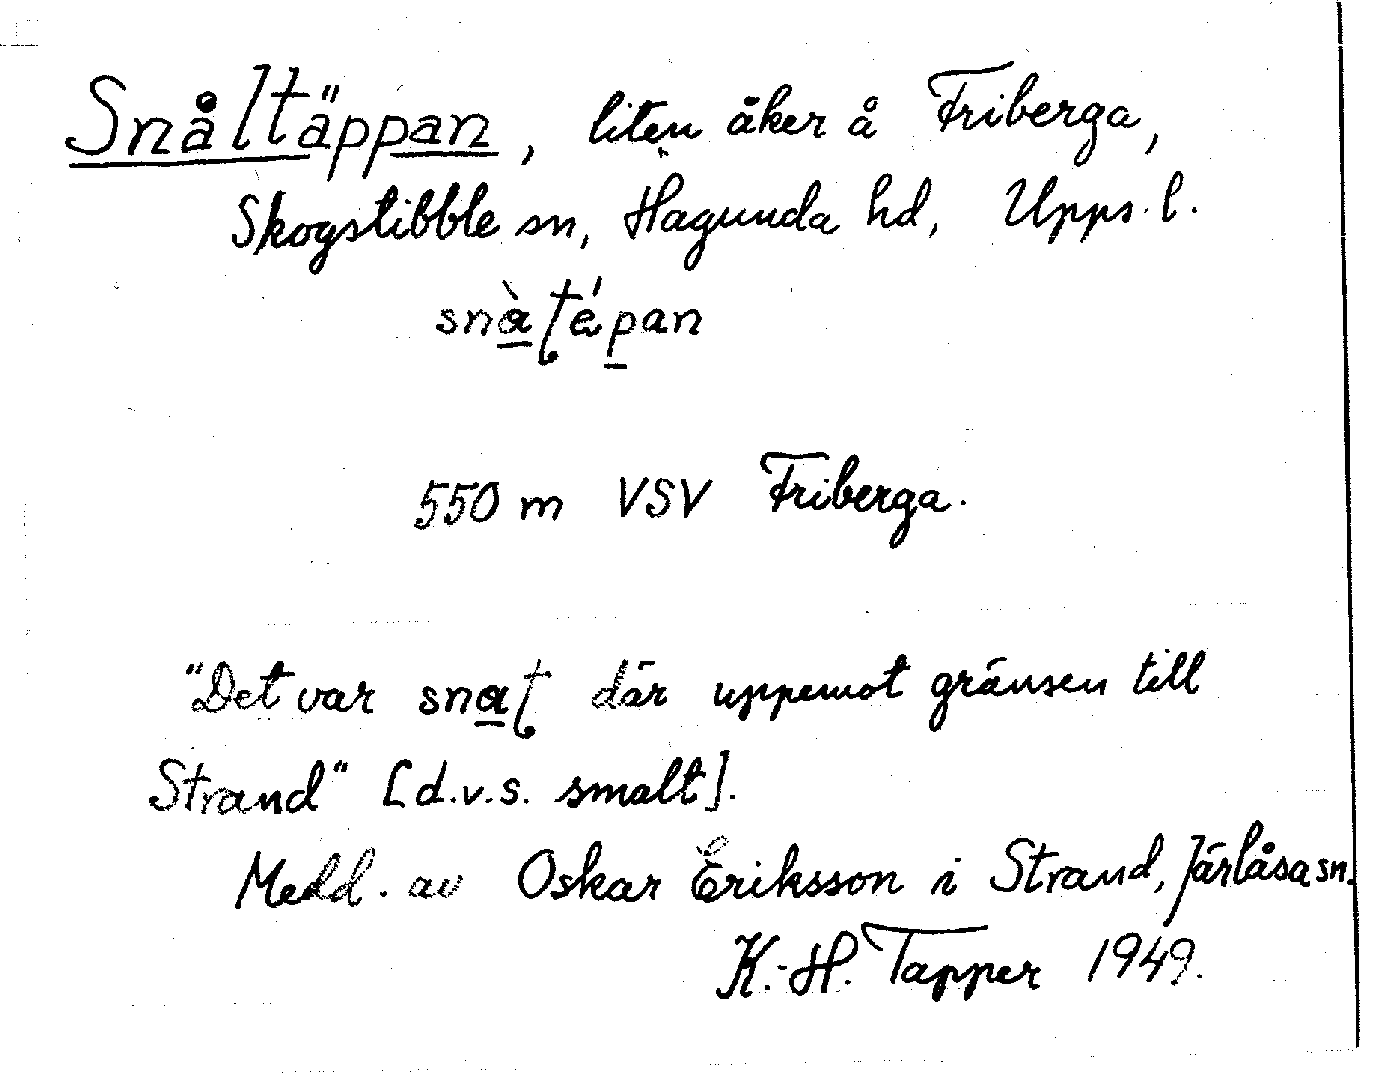 Snåltäppan, liten åker å Friberga,
Skogstibble sn, Hagunda hd, Upps. l.
snàʈépan
550 m VSV Friberga.
"Det var snaʈ där uppemot gränsen till
Strand" [d.v.s. smalt].
Medd. av Oskar Eriksson i Strand, Järlåsa sn.
K.-H. Tapper 1949.